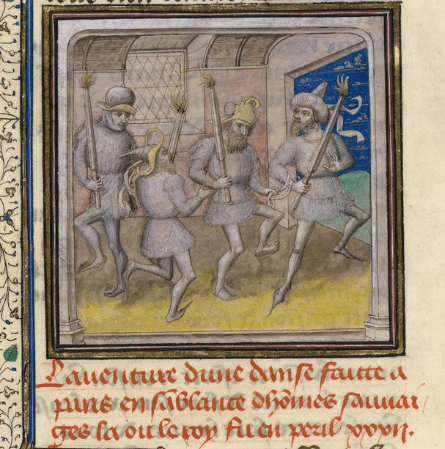 Laventure dune danse faitte a
paris en sãblance dhõmes sauuai
ges la ou le roy fu en peril xxxii.